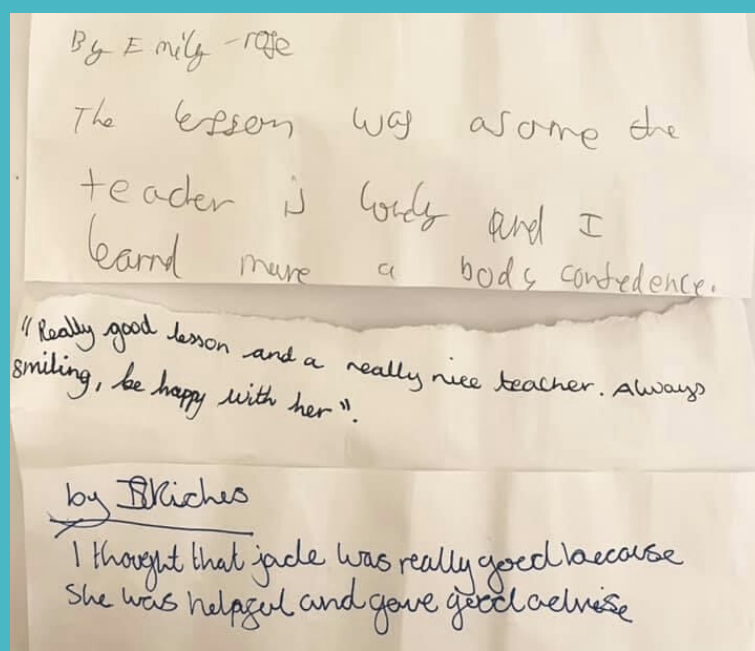 By Emily-rose
The lesson was asome the
teacher is lovely and I
learnd mure a body confedence.
"Really good lesson and a really nice teacher. Always
smiling, be happy with her".
by Riches
I thought that jade was really good because
She was helpful and gave good advise